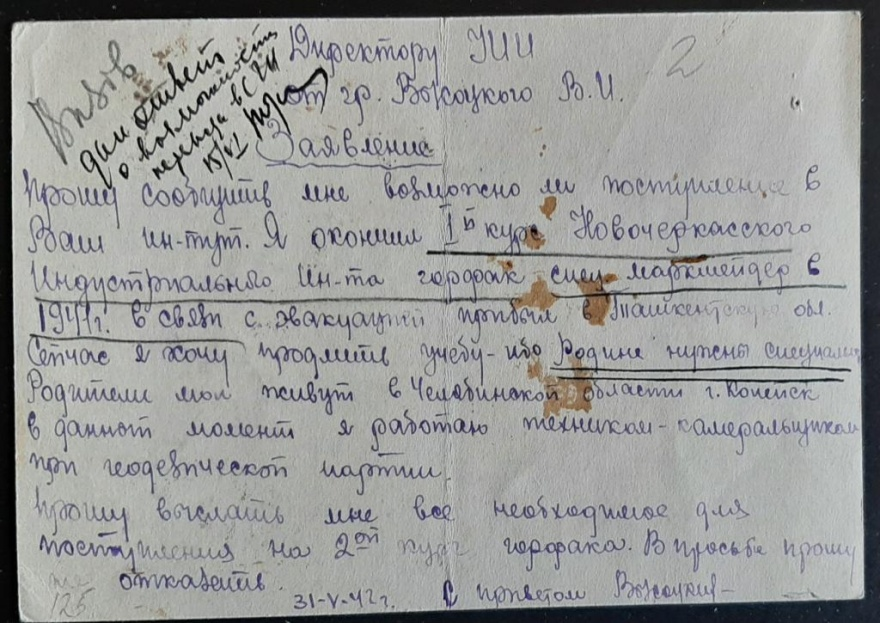 Директору УИИ
от гр. Высоцкого В.И.
2
Вызов
дан ответ
о возможности
перевода в СГИ
15/VI
Заявление
Прошу сообщить мне возможно ли поступление в
Ваш ин-тут. Я окончил Iй курс Новочеркасского
Индустриального Ин-та горфак спец. маркшейдер в
1941г. в связи с эвакуацией прибыл в Ташкентскую обл.
Сейчас я хочу продлить учебу - ибо Родине нужны специали
Родители мои живут в Челябинской области г. Копейск
в данный момент я работаю техником-камеральщиком
при геодезической партии.
Прошу выслать мне все необходимое для
поступления на 2ой курс горфака. В просьбе прошу
не отказать.
125
31-V-42г. С приветом Высоцкий